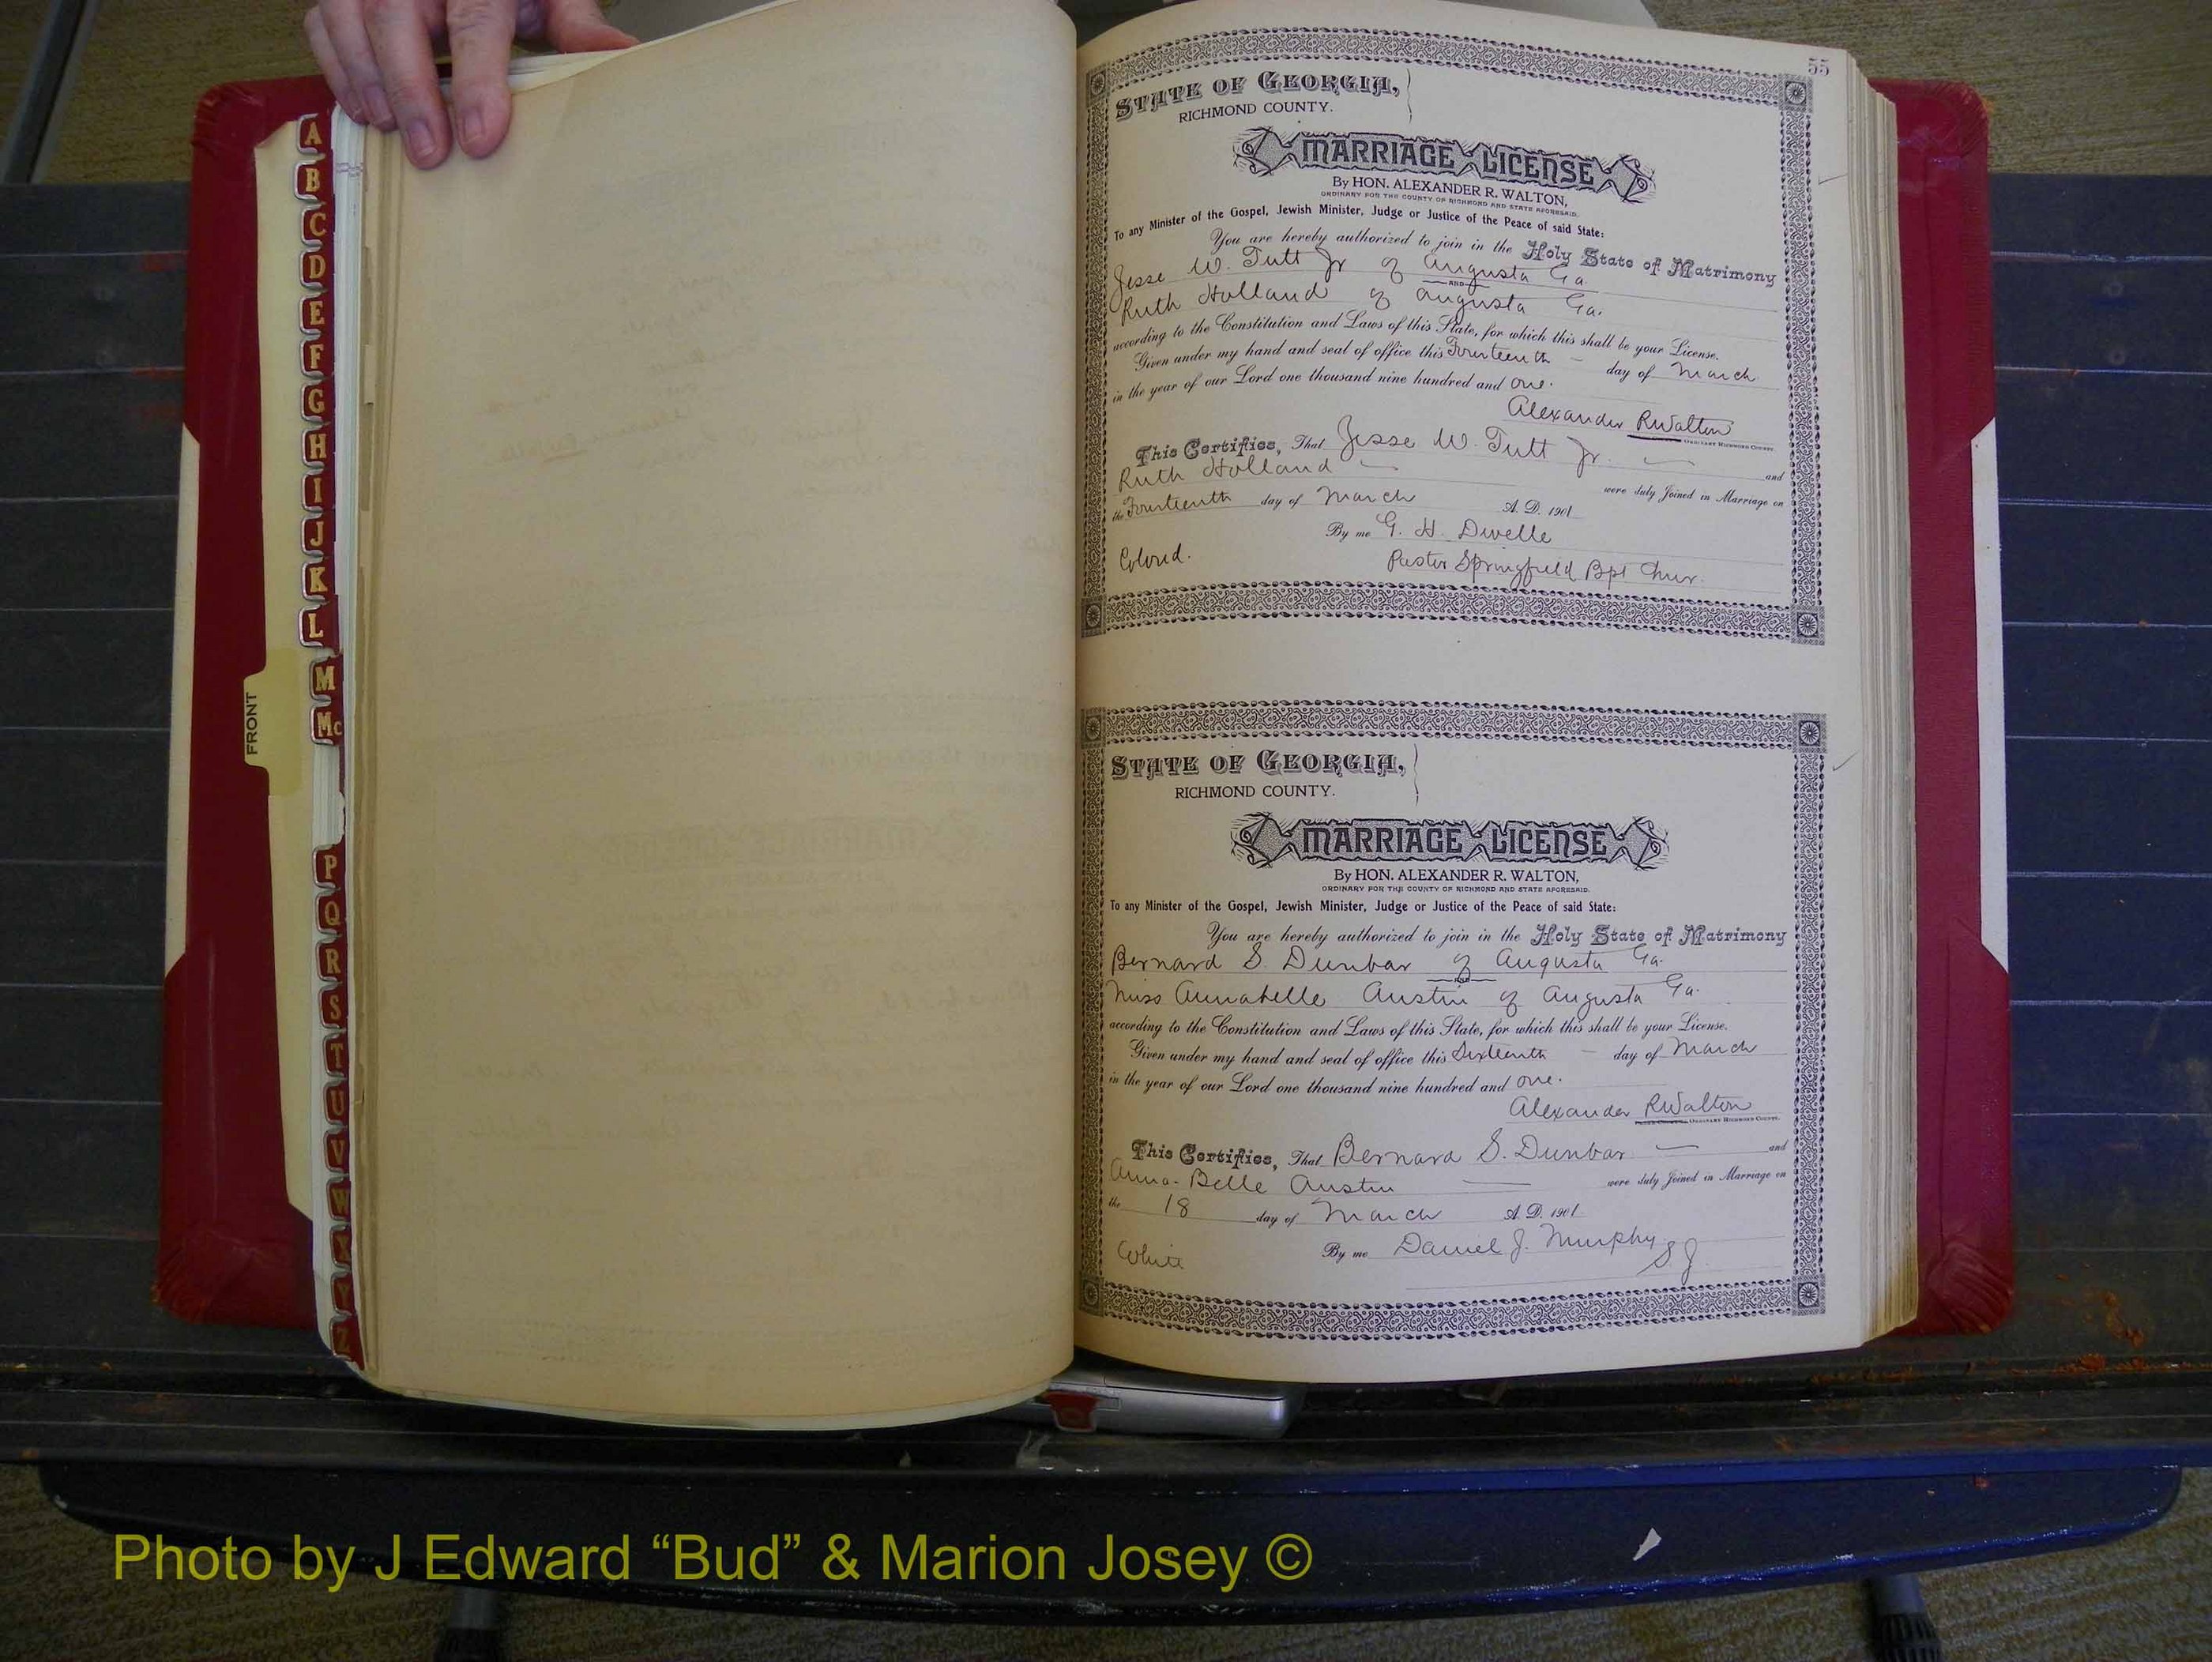 A
B
C
D
E
F
G
H
I
J
K
L
M
Mc
P
Q
R
S
T
U
V
W
X
Y
Z
FRONT
55
STATE OF GEORGIA,
RICHMOND COUNTY.
MARRIAGE LICENSE
By HON. ALEXANDER R. WALTON,
ORDINARY FOR THE COUNTY OF RICHMOND AND STATE AFORESAID.
To any Minister of the Gospel, Jewish Minister, Judge or Justice of the Peace of said State:
You are hereby authorized to join in the Holy State of Matrimony
Jesse W. Tutt Jr of Augusta Ga
AND
Ruth Holland of Augusta Ga.
according to the Constitution and Laws of this State, for which this shall be your License.
Given under my hand and seal of office this Fourteenth day of March
in the year of our Lord one thousand nine hundred and one.
Alexander R Walton
ORDINARY RICHMOND COUNTY.
This Certifies, That Jesse W. Tutt Jr. and
Ruth Holland were duly Joined in Marriage on
the Fourteenth day of March A. D. 1901
By me G. H. Dwelle
Colored. Pastor Springfield Bpt Chur.
STATE OF GEORGIA,
RICHMOND COUNTY.
MARRIAGE LICENSE
By HON. ALEXANDER R. WALTON,
ORDINARY FOR THE COUNTY OF RICHMOND AND STATE AFORESAID.
To any Minister of the Gospel, Jewish Minister, Judge or Justice of the Peace of said State:
You are hereby authorized to join in the Holy State of Matrimony
Bernard S. Dunbar of Augusta Ga.
AND
Miss Annabelle Austin of Augusta Ga.
according to the Constitution and Laws of this State, for which this shall be your License.
Given under my hand and seal of office this Sixteenth day of March
in the year of our Lord one thousand nine hundred and one.
Alexander R Walton
ORDINARY RICHMOND COUNTY.
This Certifies, That Bernard S. Dunbar and
Anna-Belle Austin were duly Joined in Marriage on
the 18 day of March A. D. 1901
White By me Daniel J. Murphy
S. J.
Photo by J Edward “Bud” & Marion Josey ©